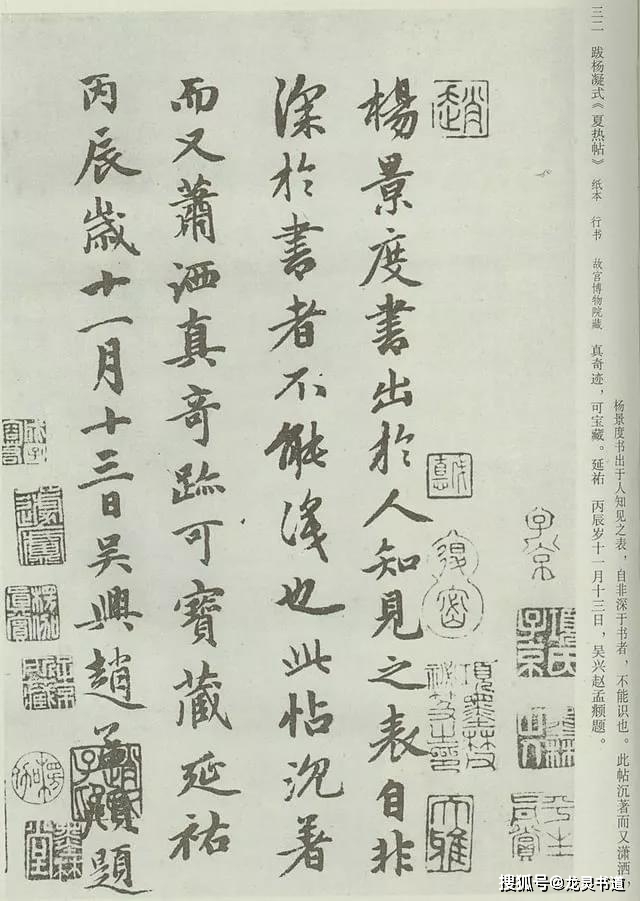 杨景度书出于人知见之表，自非深于书者，不能识也。此帖沉著而又潇洒，
三二 跋杨凝式《夏热帖》 纸本 行书 故宫博物院藏 真奇迹，可宝藏。延祐 丙辰岁十一月十三日，吴兴赵孟頫题。
子京
趙
大雅
楊景度書出於人知見之表自非
深於書者不能識也此帖沉著
而又蕭洒真奇跡可寶藏延祐
丙辰歲十一月十三日吳興趙孟頫題
搜狐号@龙灵书道